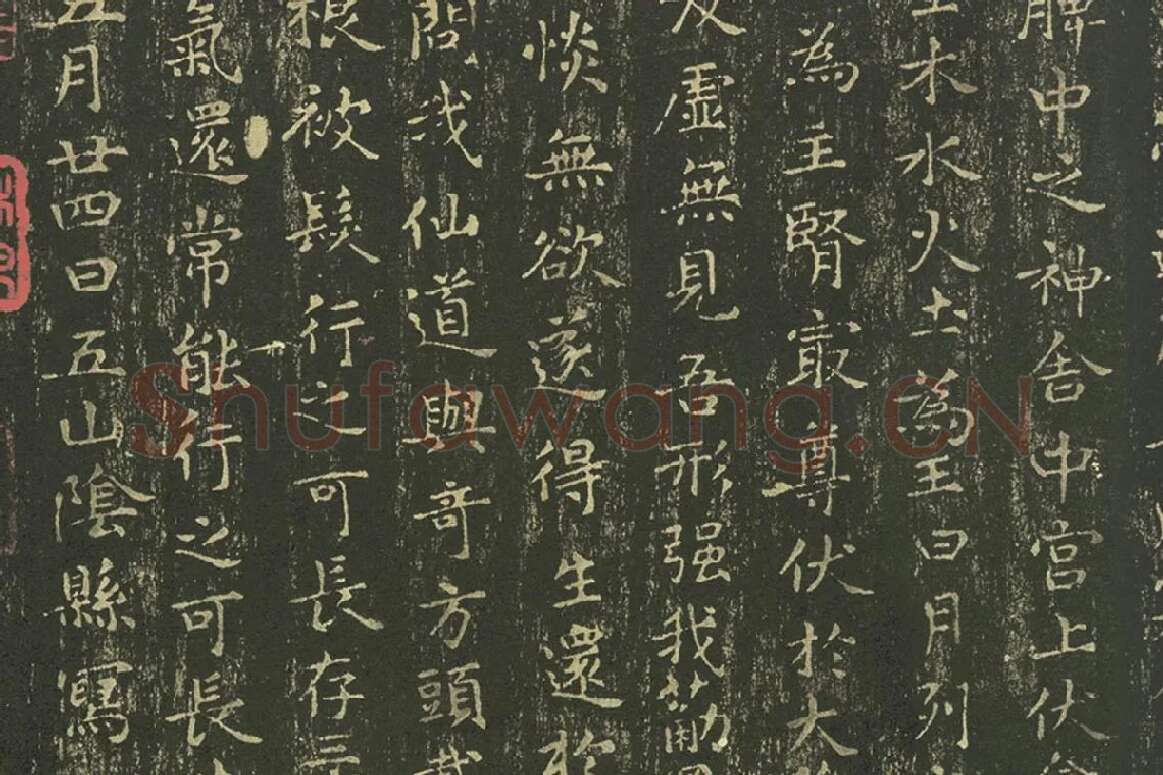 脾中之神舍中宮上伏
木水火土為王日月列
為主腎㝡尊伏於大
及虛無見吾形强我筋
惔無欲遂得生還於
問我仙道與奇方頭
根被髮行之可長存三
氣還常能行之可長
五月廿四日五山陰縣寫
Shufawang.CN